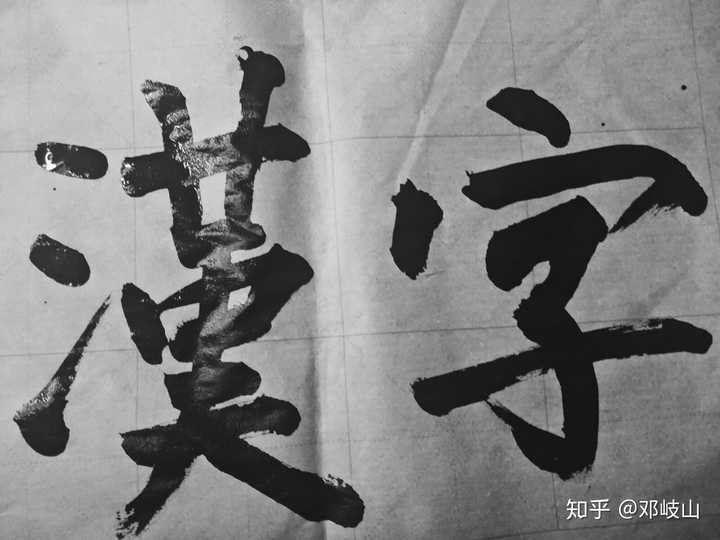 漢字
知乎 @邓岐山